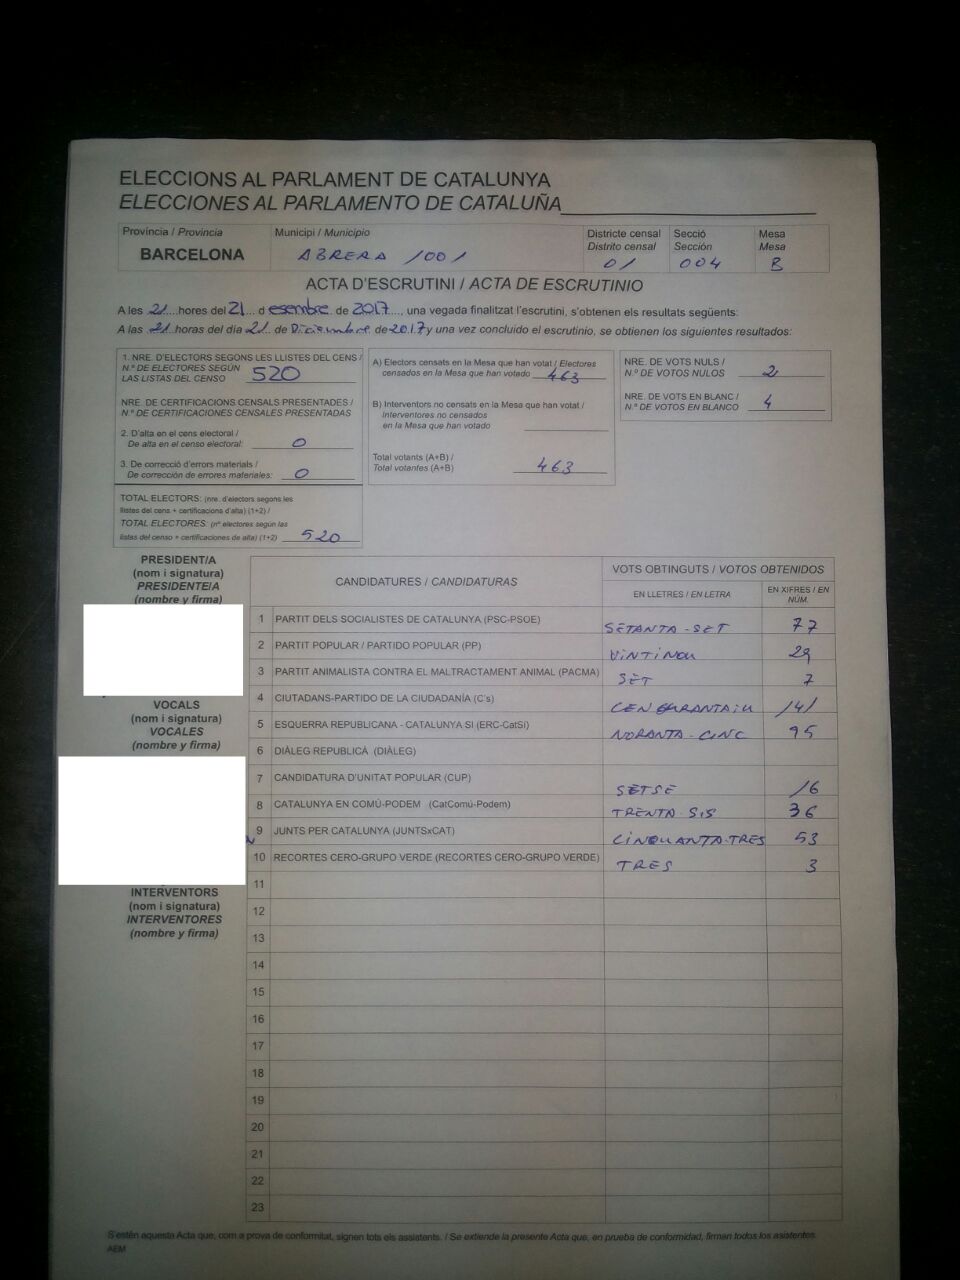 ELECCIONS AL PARLAMENT DE CATALUNYA
ELECCIONES AL PARLAMENTO DE CATALUÑA
Província / Provincia Municipi / Municipio Districte censal Secció Mesa
Distrito censal Sección Mesa
BARCELONA ABRERA /001 01 004 B
ACTA D'ESCRUTINI / ACTA DE ESCRUTINIO
A les 21 hores del 21 d esembre de 2017, una vegada finalitzat l'escrutini, s'obtenen els resultats següents:
A las 21 horas del día 21 de Diciembre de 2017 y una vez concluido el escrutinio, se obtienen los siguientes resultados:
1. NRE. D'ELECTORS SEGONS LES LLISTES DEL CENS /
N.º DE ELECTORES SEGÚN
LAS LISTAS DEL CENSO 520
NRE. DE CERTIFICACIONS CENSALS PRESENTADES /
N.º DE CERTIFICACIONES CENSALES PRESENTADAS
2. D'alta en el cens electoral /
De alta en el censo electoral: 0
3. De correcció d'errors materials /
De corrección de errores materiales: 0
TOTAL ELECTORS: (nre. d'electors segons les
llistes del cens + certificacions d'alta) (1+2) /
TOTAL ELECTORES: (nº electores según las
listas del censo + certificaciones de alta) (1+2) 520
A) Electors censats en la Mesa que han votat / Electores
censados en la Mesa que han votado 463
B) Interventors no censats en la Mesa que han votat /
Interventores no censados
en la Mesa que han votado
Total votants (A+B) /
Total votantes (A+B) 463
NRE. DE VOTS NULS /
N.º DE VOTOS NULOS 2
NRE. DE VOTS EN BLANC /
N.º DE VOTOS EN BLANCO 4
PRESIDENT/A
(nom i signatura)
PRESIDENTE/A
(nombre y firma)
VOCALS
(nom i signatura)
VOCALES
(nombre y firma)
INTERVENTORS
(nom i signatura)
INTERVENTORES
(nombre y firma)
CANDIDATURES / CANDIDATURAS VOTS OBTINGUTS / VOTOS OBTENIDOS
EN LLETRES / EN LETRA EN XIFRES / EN NÚM.
1 PARTIT DELS SOCIALISTES DE CATALUNYA (PSC-PSOE) SETANTA-SET 77
2 PARTIT POPULAR / PARTIDO POPULAR (PP) VINTINOU 29
3 PARTIT ANIMALISTA CONTRA EL MALTRACTAMENT ANIMAL (PACMA) SET 7
4 CIUTADANS-PARTIDO DE LA CIUDADANÍA (C's) 141
5 ESQUERRA REPUBLICANA - CATALUNYA SI (ERC-CatSí) NORANTA-CINC 95
6 DIÀLEG REPUBLICÀ (DIÀLEG)
7 CANDIDATURA D'UNITAT POPULAR (CUP) SETSE 16
8 CATALUNYA EN COMÚ-PODEM (CatComú-Podem) TRENTA SIS 36
9 JUNTS PER CATALUNYA (JUNTSxCAT) CINQUANTA-TRES 53
10 RECORTES CERO-GRUPO VERDE (RECORTES CERO-GRUPO VERDE) TRES 3
11
12
13
14
15
16
17
18
19
20
21
22
23
S'estén aquesta Acta que, com a prova de conformitat, signen tots els assistents. / Se extiende la presente Acta que, en prueba de conformidad, firman todos los asistentes.
AEM